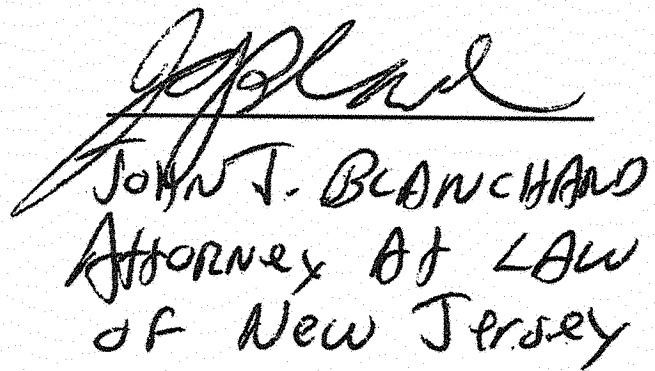 John J. Blanchard
Attorney At Law
of New Jersey